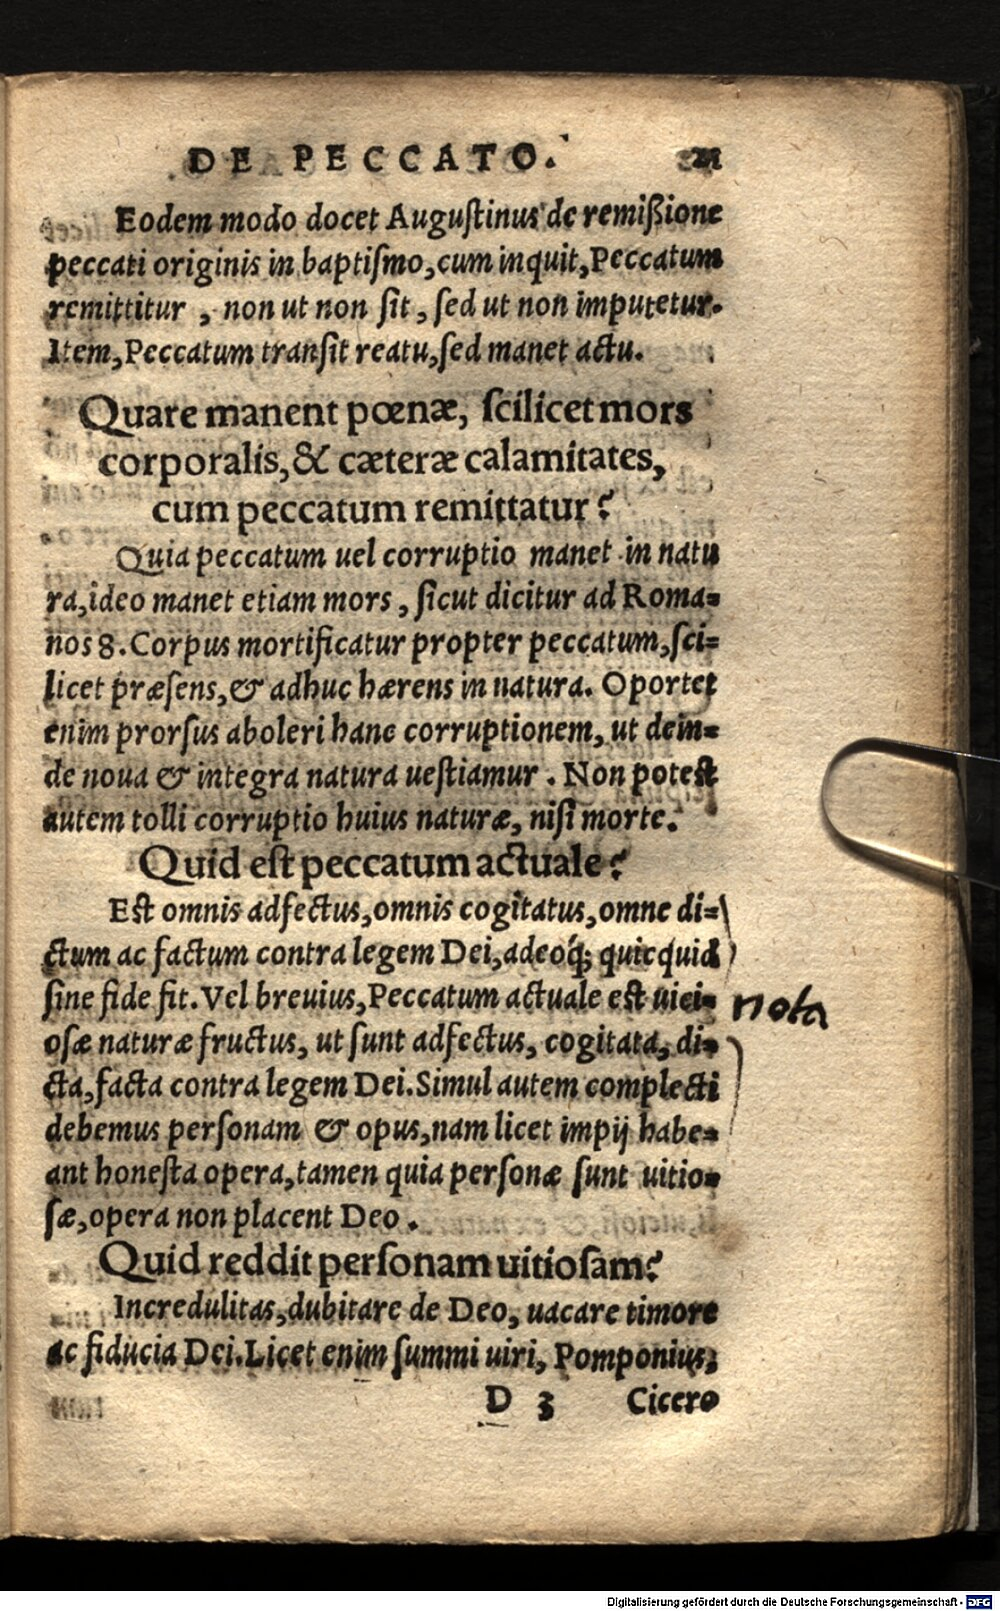 DE PECCATO. 21
Eodem modo docet Auguſtinus de remißione
peccati originis in baptiſmo, cum inquit, Peccatum
remittitur, non ut non ſit, ſed ut non imputetur.
Item, Peccatum tranſit reatu, ſed manet actu.
Quare manent pœnæ, ſcilicet mors
corporalis, & cæteræ calamitates,
cum peccatum remittatur?
Quia peccatum uel corruptio manet in natu
ra, ideo manet etiam mors, ſicut dicitur ad Roma=
nos 8. Corpus mortificatur propter peccatum, ſci=
licet præſens, & adhuc hærens in natura. Oportet
enim prorſus aboleri hanc corruptionem, ut dein=
de noua & integra natura ueſtiamur. Non poteſt
autem tolli corruptio huius naturæ, niſi morte.
Quid eſt peccatum actuale?
Eſt omnis adfectus, omnis cogitatus, omne di=
ctum ac factum contra legem Dei, adeoq́; quicquid
ſine fide fit. Vel breuius, Peccatum actuale eſt uici=
oſæ naturæ fructus, ut ſunt adfectus, cogitata, di=
cta, facta contra legem Dei. Simul autem complecti
debemus perſonam & opus, nam licet impij habe=
ant honeſta opera, tamen quia perſonæ ſunt uitio=
ſæ, opera non placent Deo.
Quid reddit perſonam uitioſam?
Incredulitas, dubitare de Deo, uacare timore
ac fiducia Dei. Licet enim ſummi uiri, Pomponius,
D 3 Cicero
nota
Digitalisierung gefördert durch die Deutsche Forschungsgemeinschaft - DFG